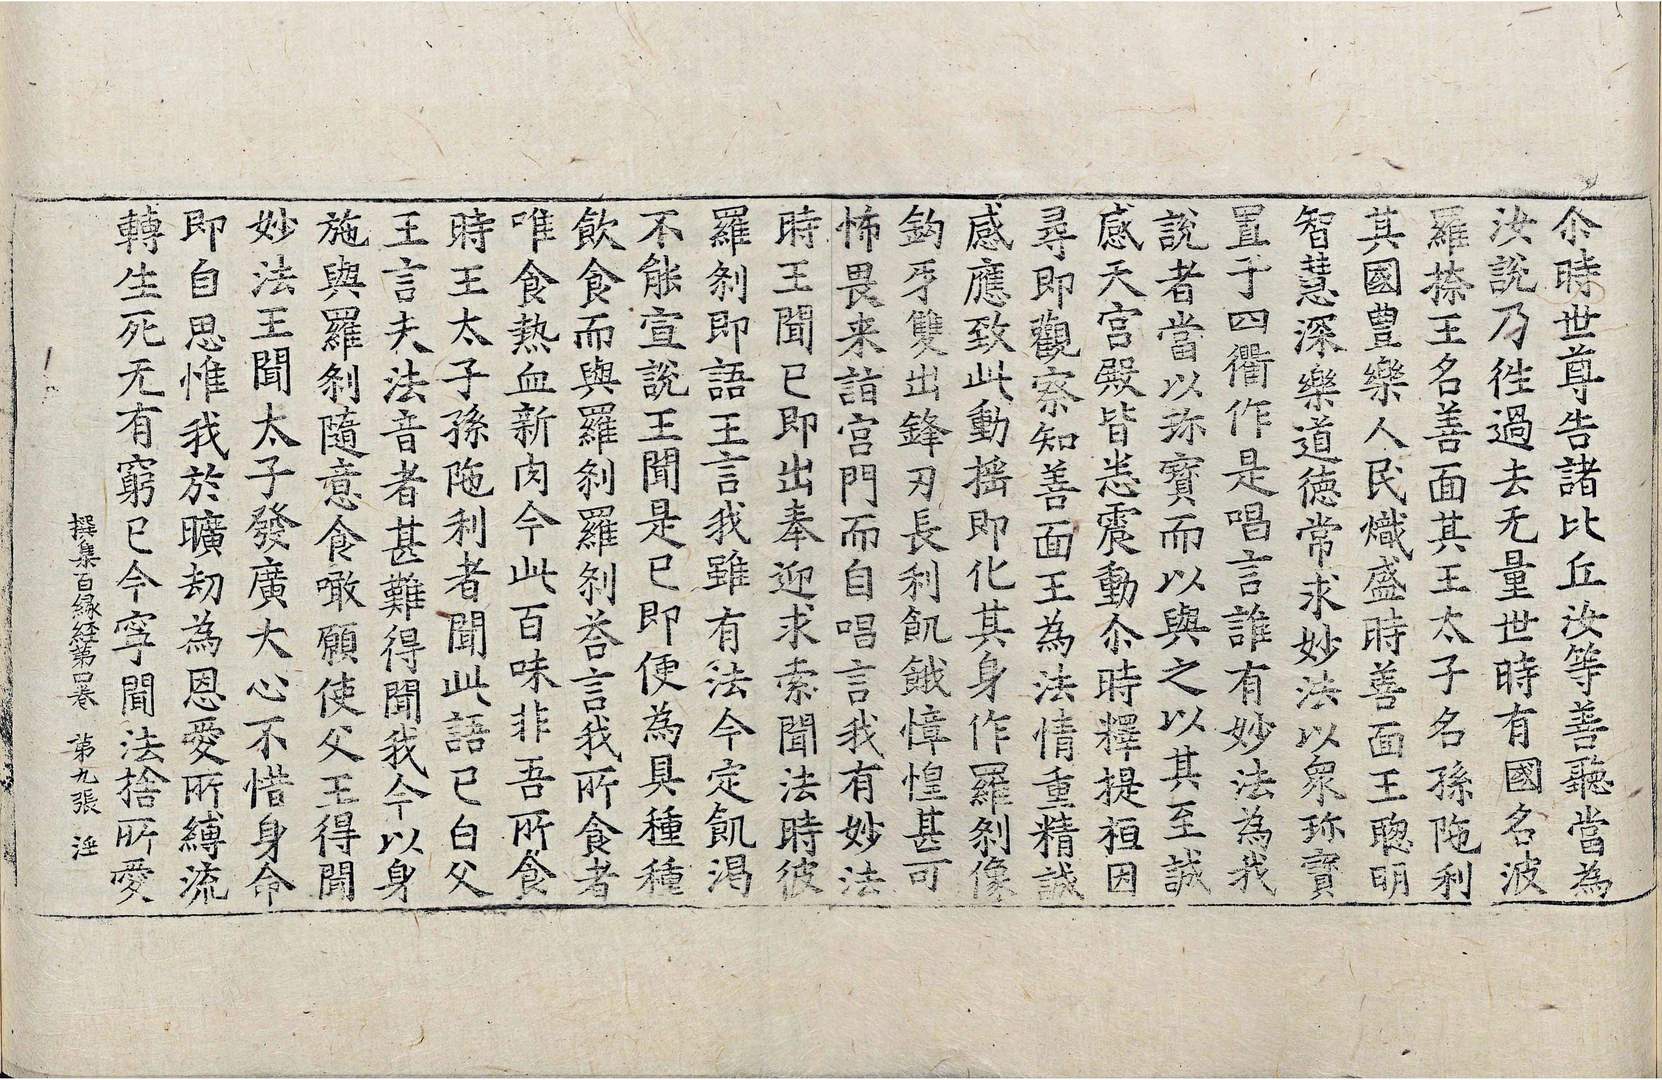 尒時世尊告諸比丘汝等善聽當為
汝說乃徃過去无量世時有國名波
羅㮈王名善面其王太子名孫陁利
其國豊樂人民熾盛時善面王聰明
智慧深樂道德常求妙法以衆珎寶
置于四衢作是唱言誰有妙法為我
說者當以珎寶而以與之以其至誠
感天宫殿皆悉震動尒時釋提桓因
尋即觀察知善面王為法情重精誠
感應致此動搖即化其身作羅刹像
鈎牙雙出鋒刃長利飢餓慞惶甚可
怖畏来詣宫門而自唱言我有妙法
時王聞已即出奉迎求索聞法時彼
羅刹即語王言我雖有法今定飢渴
不能宣說王聞是已即便為具種種
飲食而與羅刹羅刹荅言我所食者
唯食熱血新肉今此百味非吾所食
時王太子孫陁利者聞此語已白父
王言夫法音者甚難得聞我今以身
施與羅刹隨意食噉願使父王得聞
妙法王聞太子發廣大心不惜身命
即自思惟我於曠劫為恩愛所縛流
轉生死无有窮已今寧聞法捨所愛
撰集百縁経第四卷 第九張 淫